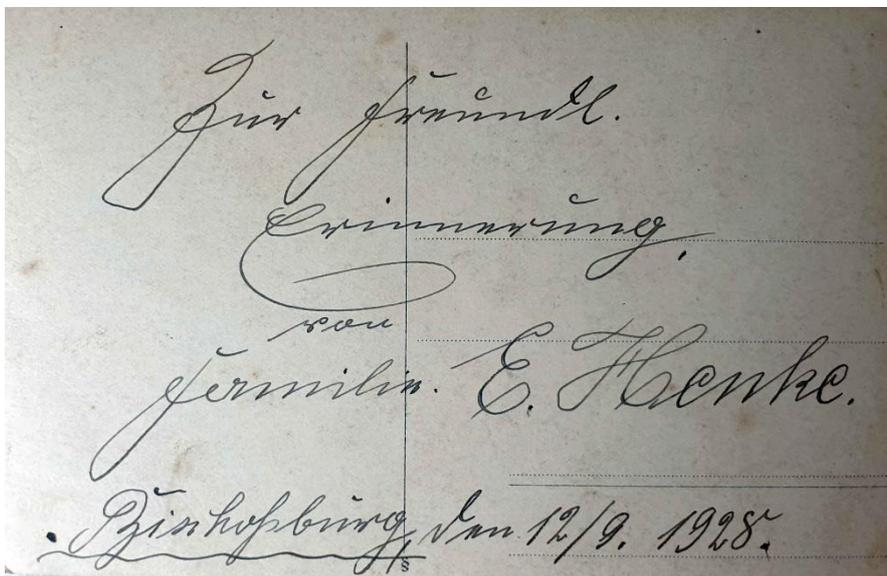 Zur freundl.
Erinnerung,
von
Familie. E. Henke.
Bischofsburg, den 12/9. 1928.